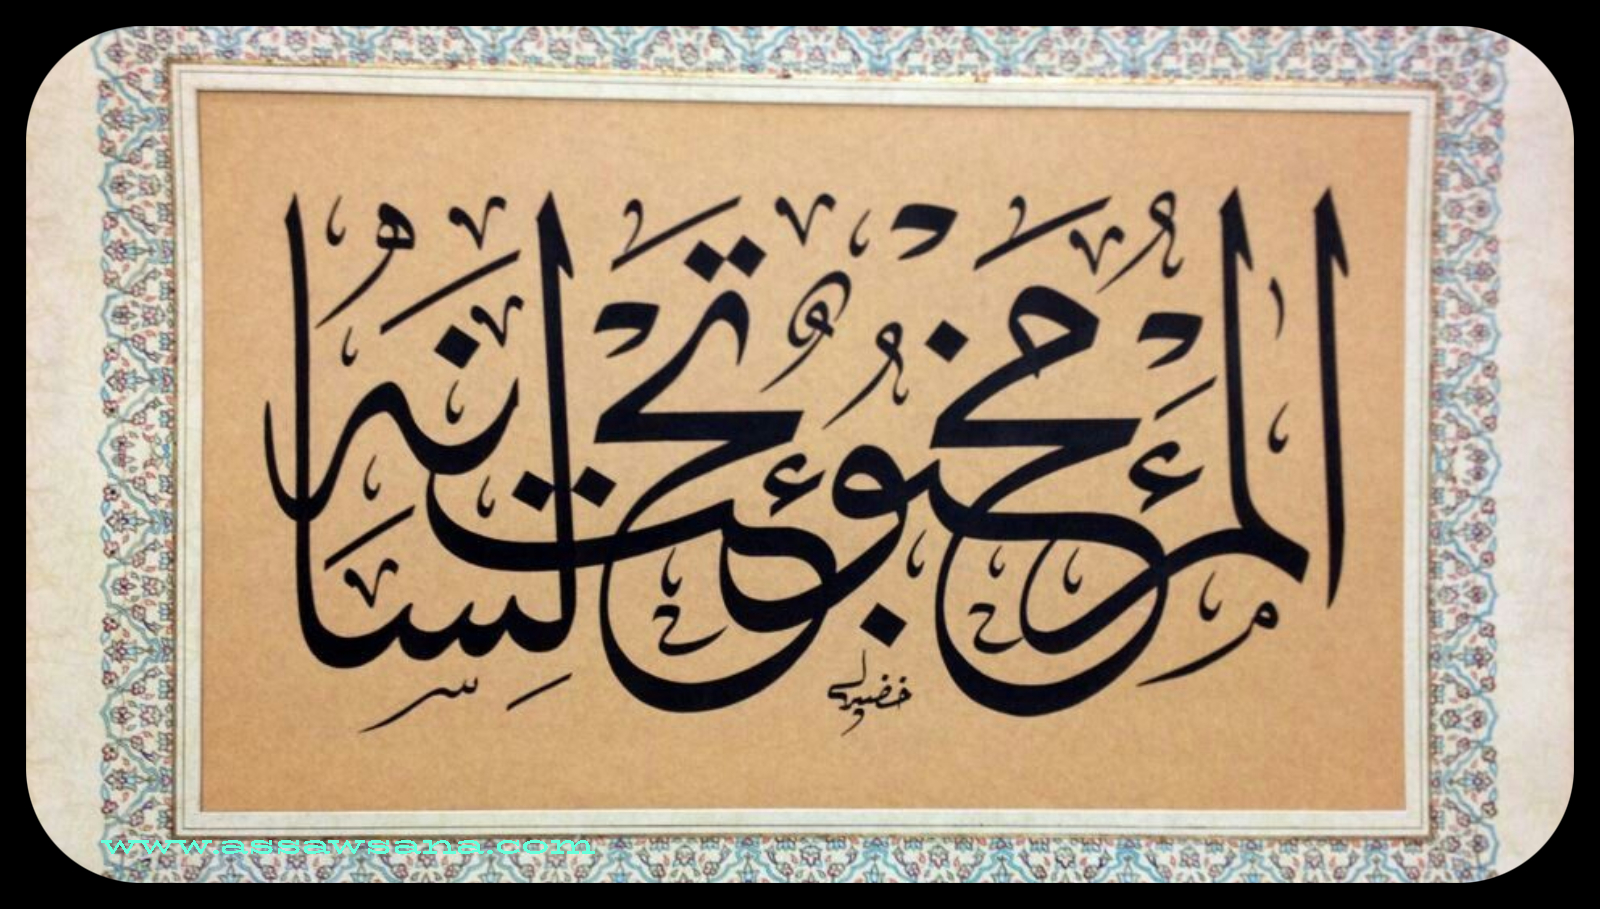 المرء مخبوء تحت لسانه
www.assawsana.com